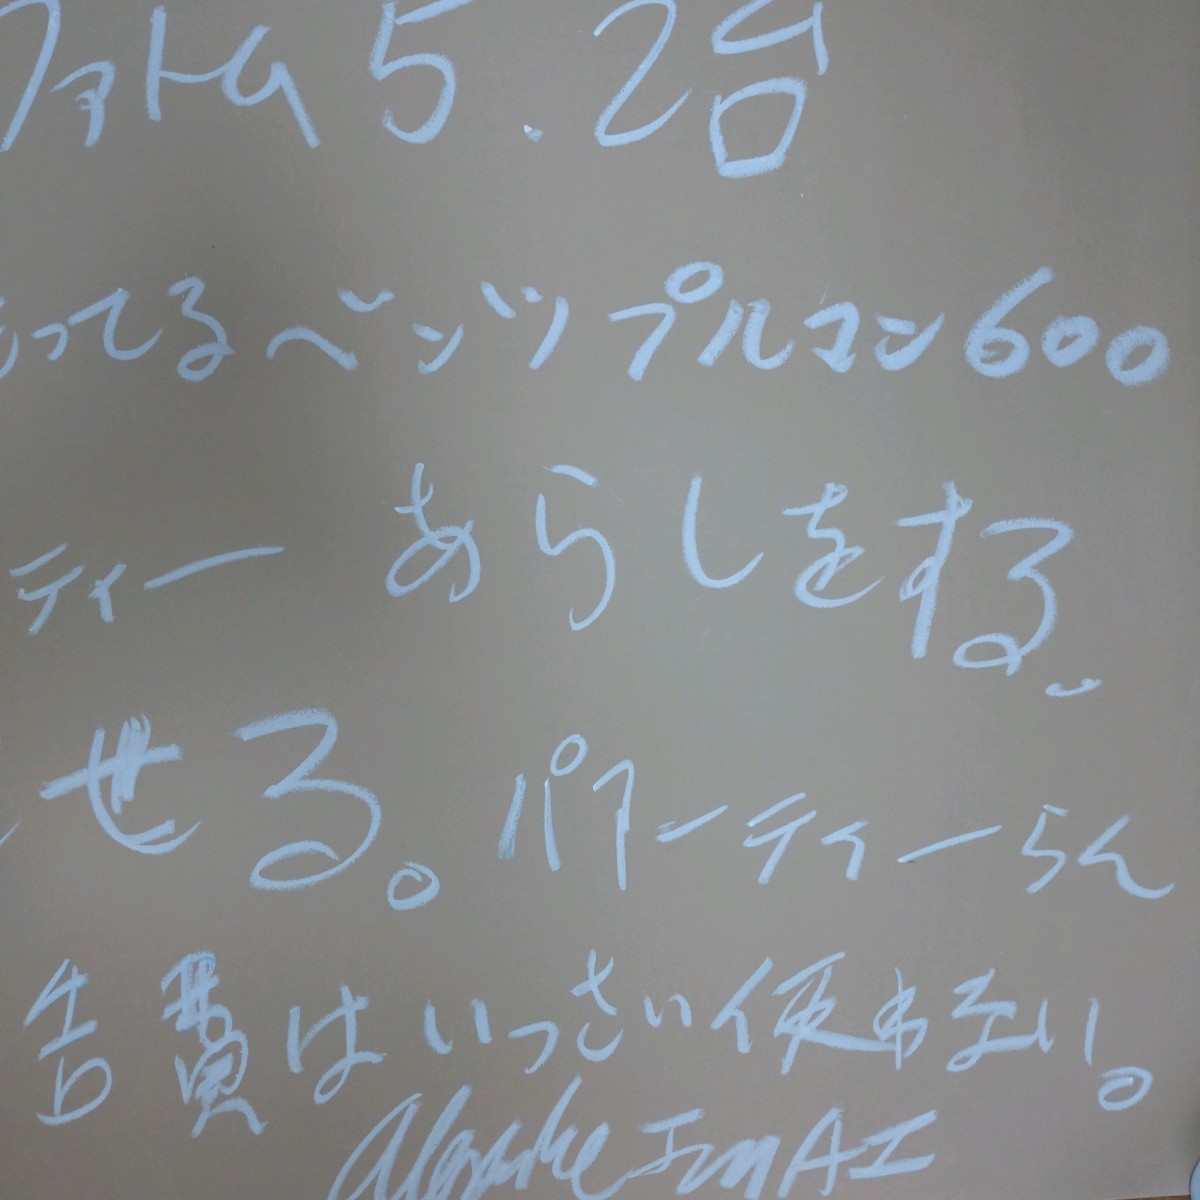 ファトム5.2台
ってるベンツプルマン600
ティー あらしをする、
せる。パーティーらん
告費はいっさい使わない。